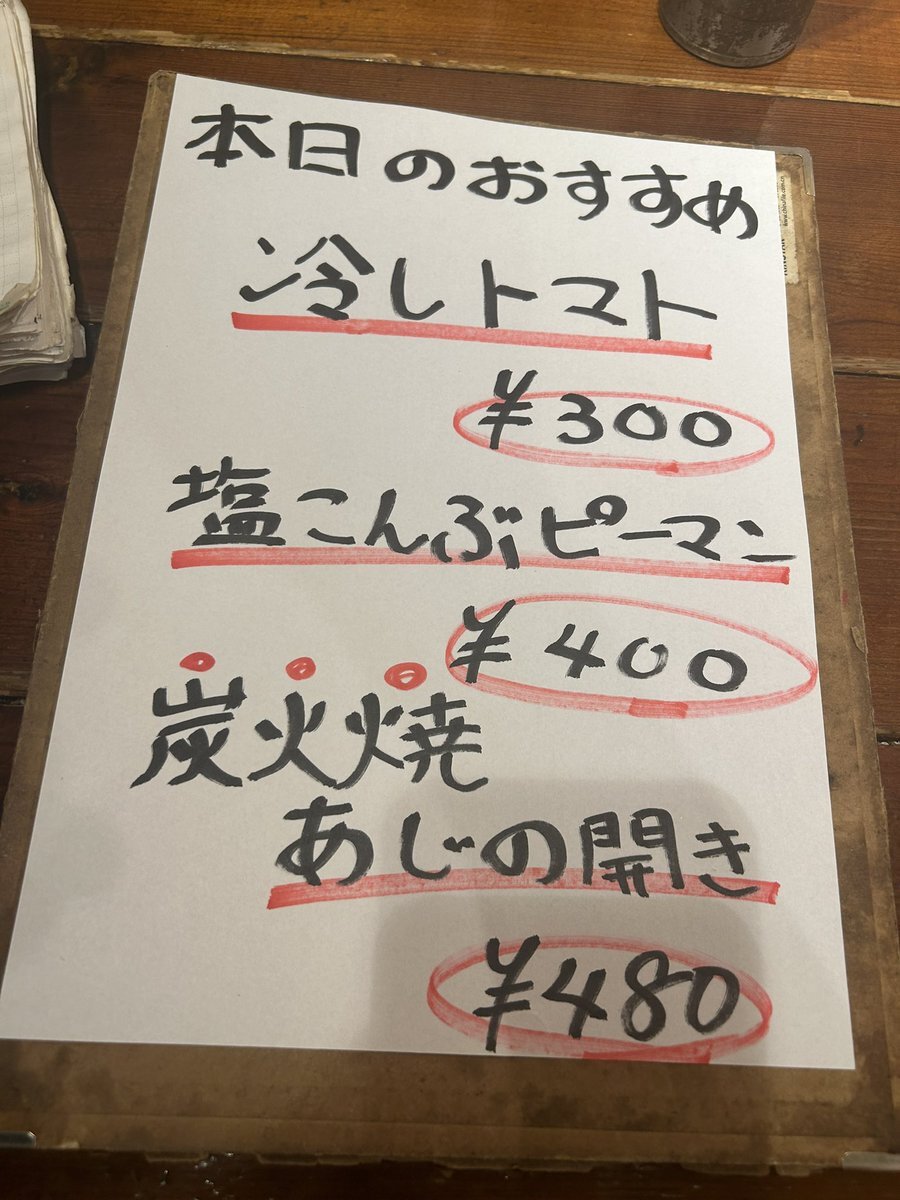 本日のおすすめ
冷しトマト
¥300
塩こんぶピーマン
¥400
炭火焼
あじの開き
¥480